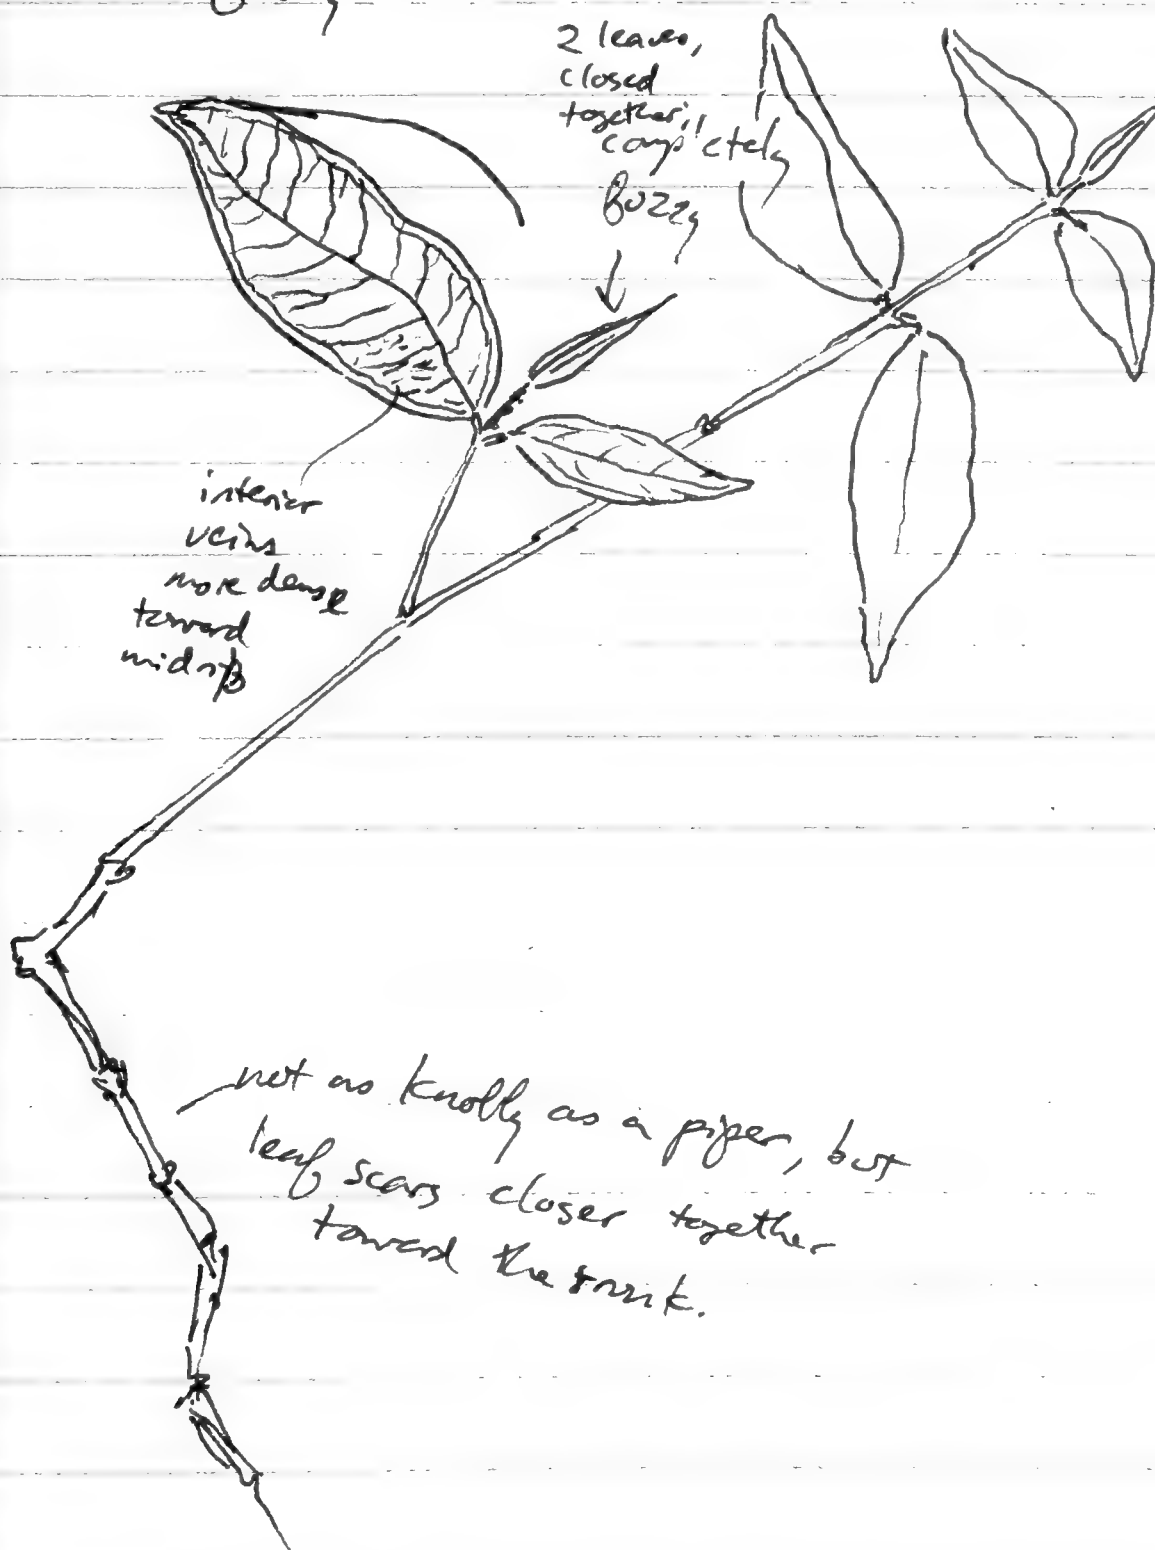 2 leaves,
closed
together,
completely
fuzzy
interior
veins
more dense
toward
midrib
not as knobby as a piper, but
leaf scars closer together
toward the trunk.